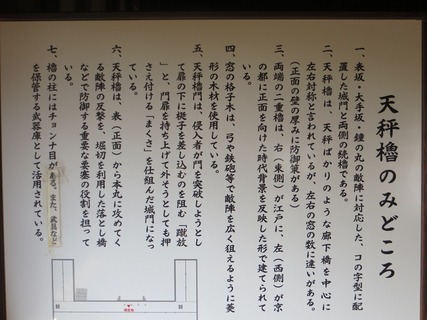 天秤櫓のみどころ
一、表坂・大手坂・鐘の丸の敵陣に対応した、コの字型に配
置した城門と両側の続櫓である。
二、天秤櫓は、天秤ばかりのような廊下橋を中心に
左右対称と言われているが、左右の窓の数に違いがある。
(正面の壁の厚みに防御策がある)
三、両端の二重櫓は、右(東側)が江戸に、左(西側)が京
の都に正面を向けた時代背景を反映した形で建てられて
いる。
四、窓の格子木は、弓や鉄砲等で敵陣を広く狙えるように菱
形の木材を使用している。
五、天秤櫓門は、侵入者が門を突破しようとし
て扉の下に梃子を差し込むのを阻む「蹴放
」と、門扉を持ち上げて外そうとしても押
さえ付ける「まくさ」を仕組んだ城門になっ
ている。
六、天秤櫓は、表(正面)から本丸に攻めてく
る敵陣の反撃を、堀切を利用した落とし橋
などで防御する重要な要塞の役割を担って
いる。
七、櫓の柱にはチョンナ目がある。また、武具など
を保管する武器庫として活用されている。